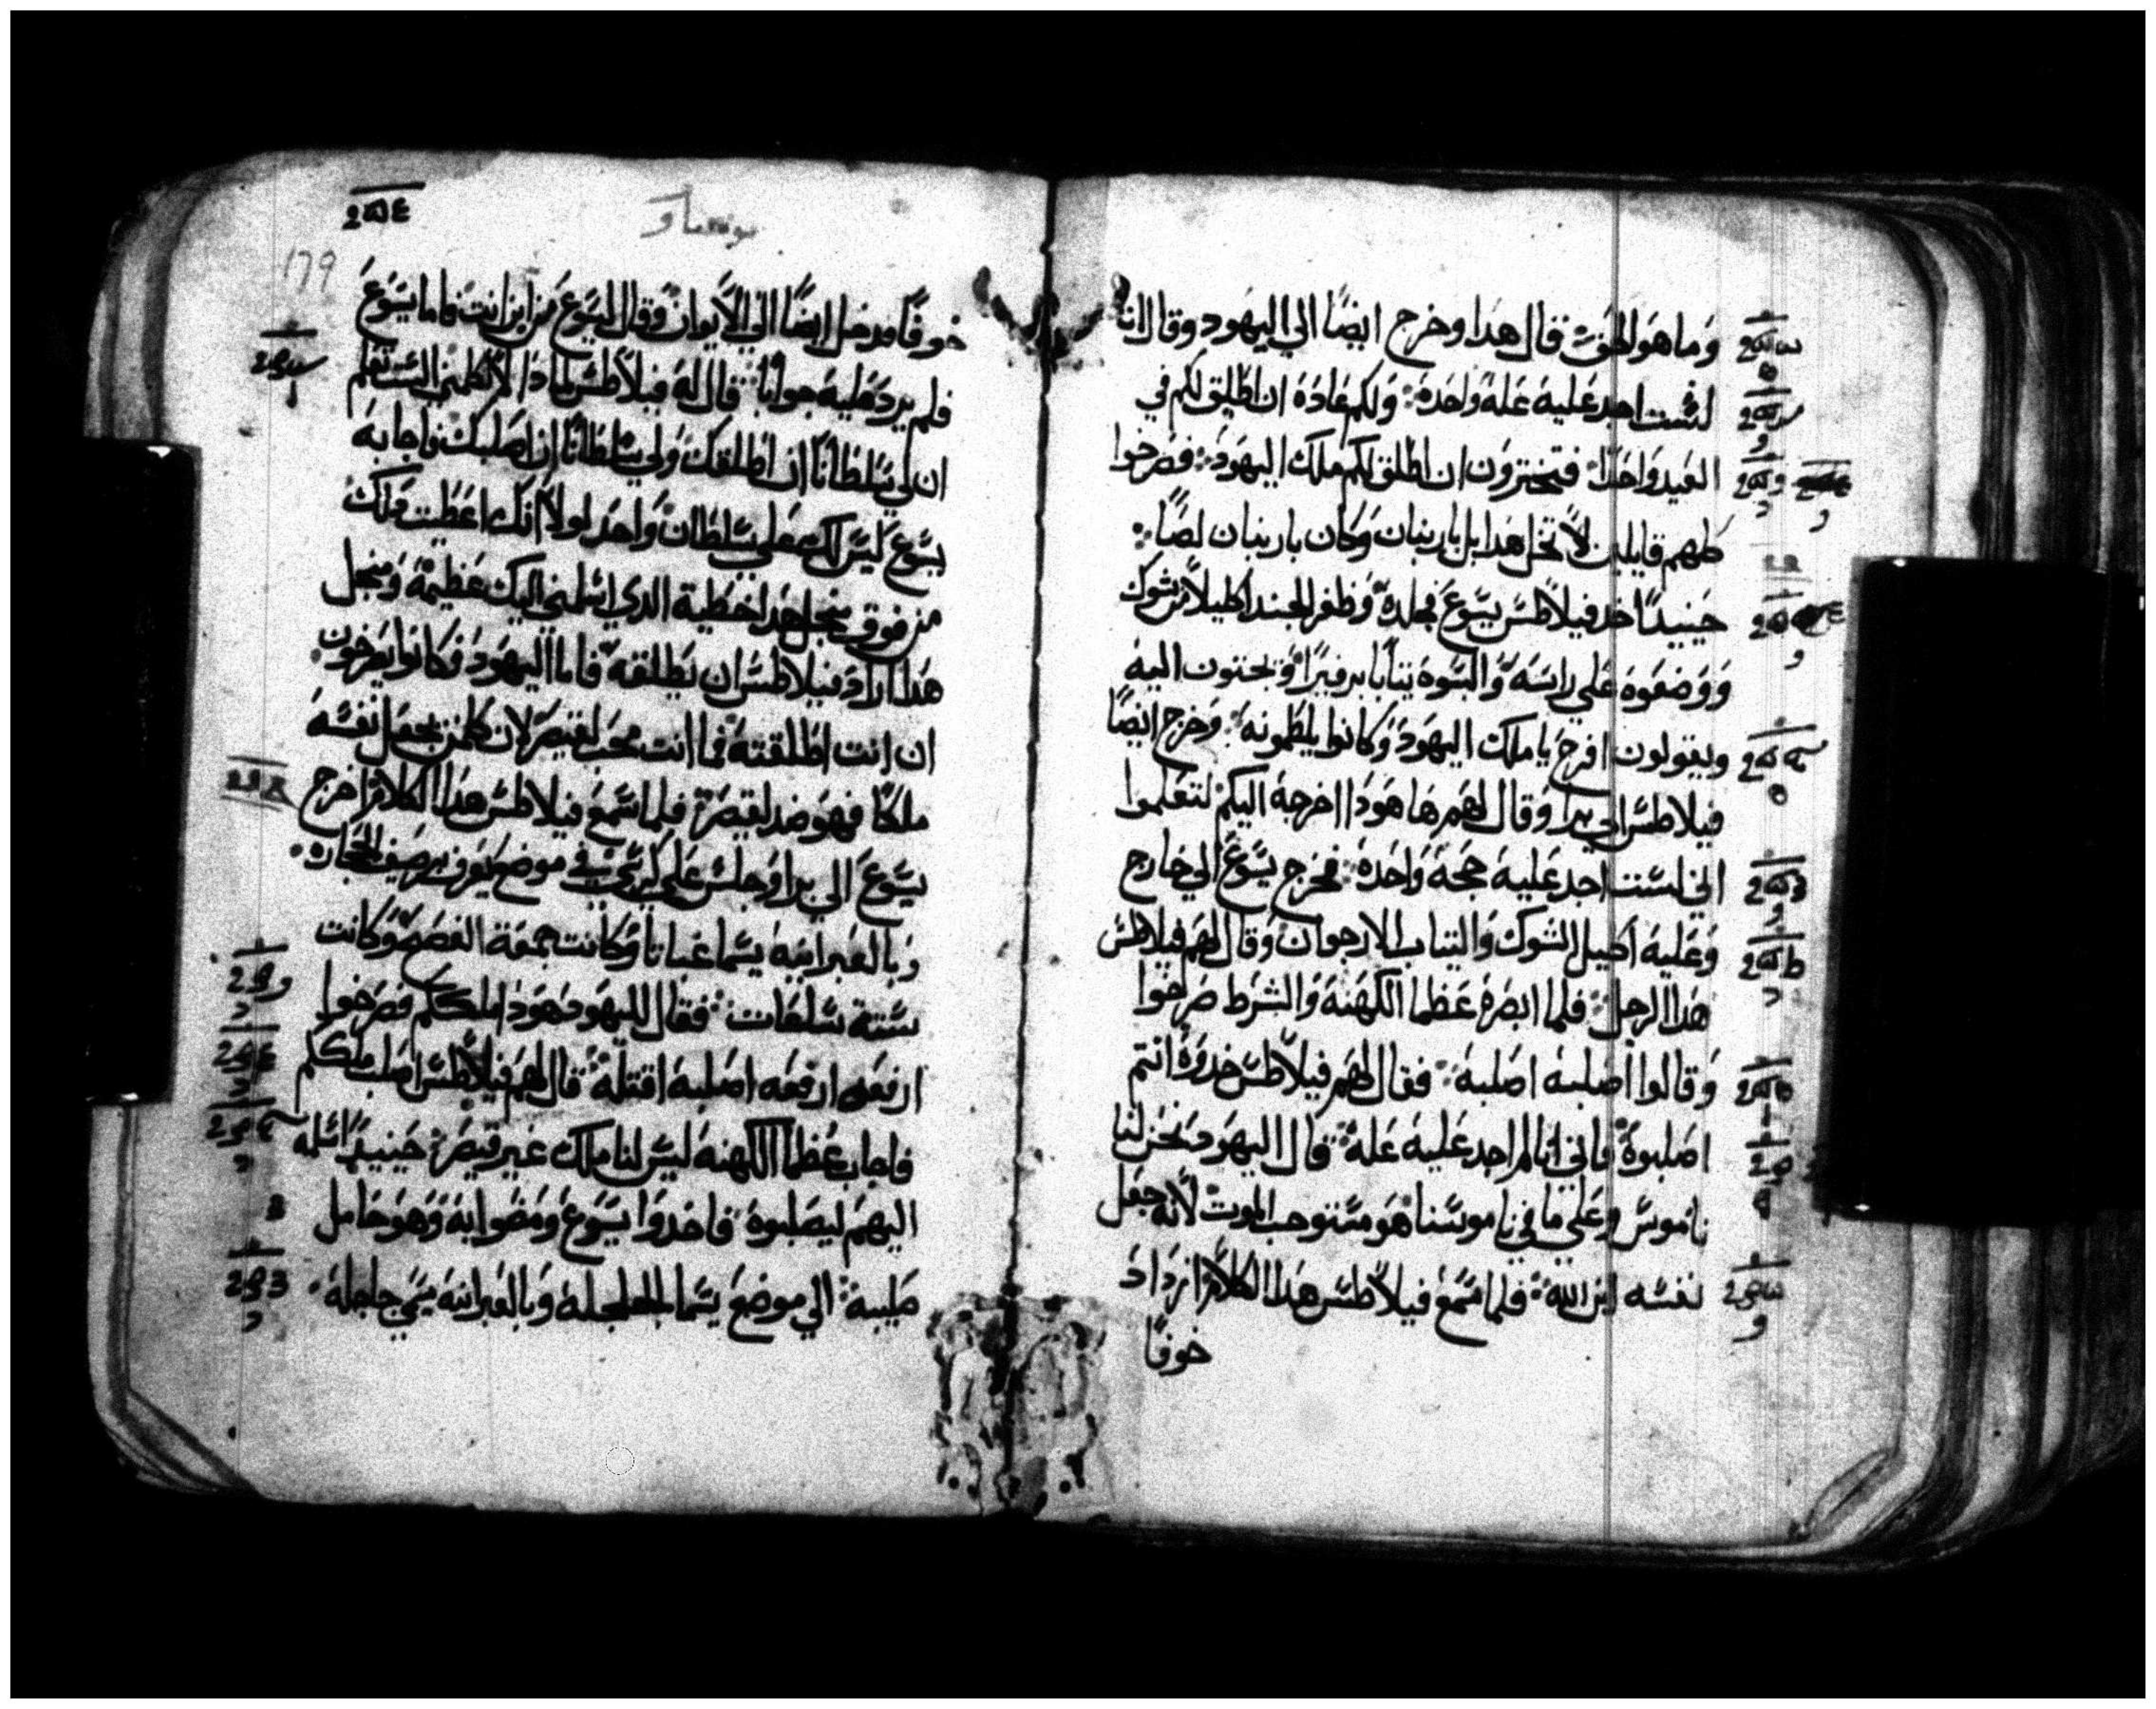 وما هو الحق قال هدا وخرج ايضًا الي اليهود وقال انا
لست اجد عليه علة واحدة ولكم عادة ان اطلق لكم في
العيد واحدًا فتختارون ان اطلق لكم ملك اليهود فصرخوا
كلهم قايلين لا تخل هدا بل باربنان وكان باربنان لصًا
حينيدًا اخد فيلاطس يسوع فجلده وظفر الجند اكليلا من شوك
ووضعوه علي راسه والبسوه تيابا برفيرًا ويجتون اليه
ويقولون افرح يا ملك اليهود وكانوا يلطمونه وخرج ايضًا
فيلاطس الي برا وقال لهم ها هودا اخرجه اليكم لتعلموا
اني لست اجد عليه حجة واحدة فخرج يسوع الي خارج
وعليه اكليل الشوك والتياب الارجوان وقال لهم فيلاطس
هدا الرجل فلما ابصره عظما الكهنة والشرط صرخوا
وقالوا اصلبه اصلبه فقال لهم فيلاطس خدوه انتم
اصلبوه فاني انا لم اجد عليه علة قال اليهود نحن لنا
ناموس وعلي ما في ناموسنا هو مستوجب الموت لانه جعل
نفسه ابن الله فلما سمع فيلاطس هدا الكلام ازداد
خوفًا
179
خوفًا فدخل ايضًا الي الايوان وقال ليسوع من اين انت فاما يسوع
فلم يرد عليه جوابًا قال له فيلاطس لمادا لا تكلمني الست تعلم
ان لي سلطانًا ان اطلقك ولي سلطانًا ان اصلبك فاجابه
يسوع ليس لك علي سلطان واحد لولا انك اعطيت دلك
من فوق من اجل هدا خطية الدي اسلمني اليك عظيمة ومن اجل
هدا اراد فيلاطس ان يطلقه فاما اليهود فكانوا يصرخون
ان انت اطلقته فما انت محب لقيصر لان كلمن يجعل نفسه
ملكًا فهو ضد لقيصر فلما سمع فيلاطس هدا الكلام اخرج
يسوع الي برا وجلس علي كرسي في موضع يعرف برصيف الحجارة
وبالعبرانيه يسما غباتا وكانت جمعة الفصح وكانت
ستة ساعات فقال لليهود هودا ملككم فصرخوا
ارفعه ارفعه اصلبه اقتله قال لهم فيلاطس اصلب ملككم
فاجاب عظما الكهنه ليس لنا ملك غير قيصر حينيدًا اسلمه
اليهم ليصلبوه فاخدوا يسوع ومضوا به وهو حامل
صليبه الي موضع يسما الجلجلة وبالعبرانيه يسمي جلجلة